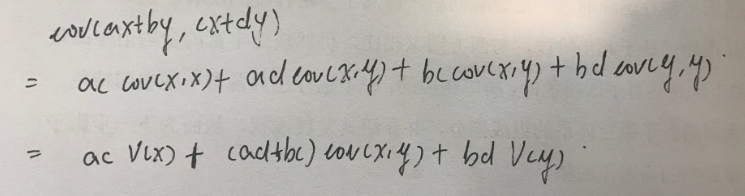 cov(ax+by, cx+dy)
= ac cov(x,x)+ ad cov(x,y)+ bc cov(x,y) + bd cov(y,y)
= ac V(x) + (ad+bc) cov(x,y) + bd V(y)